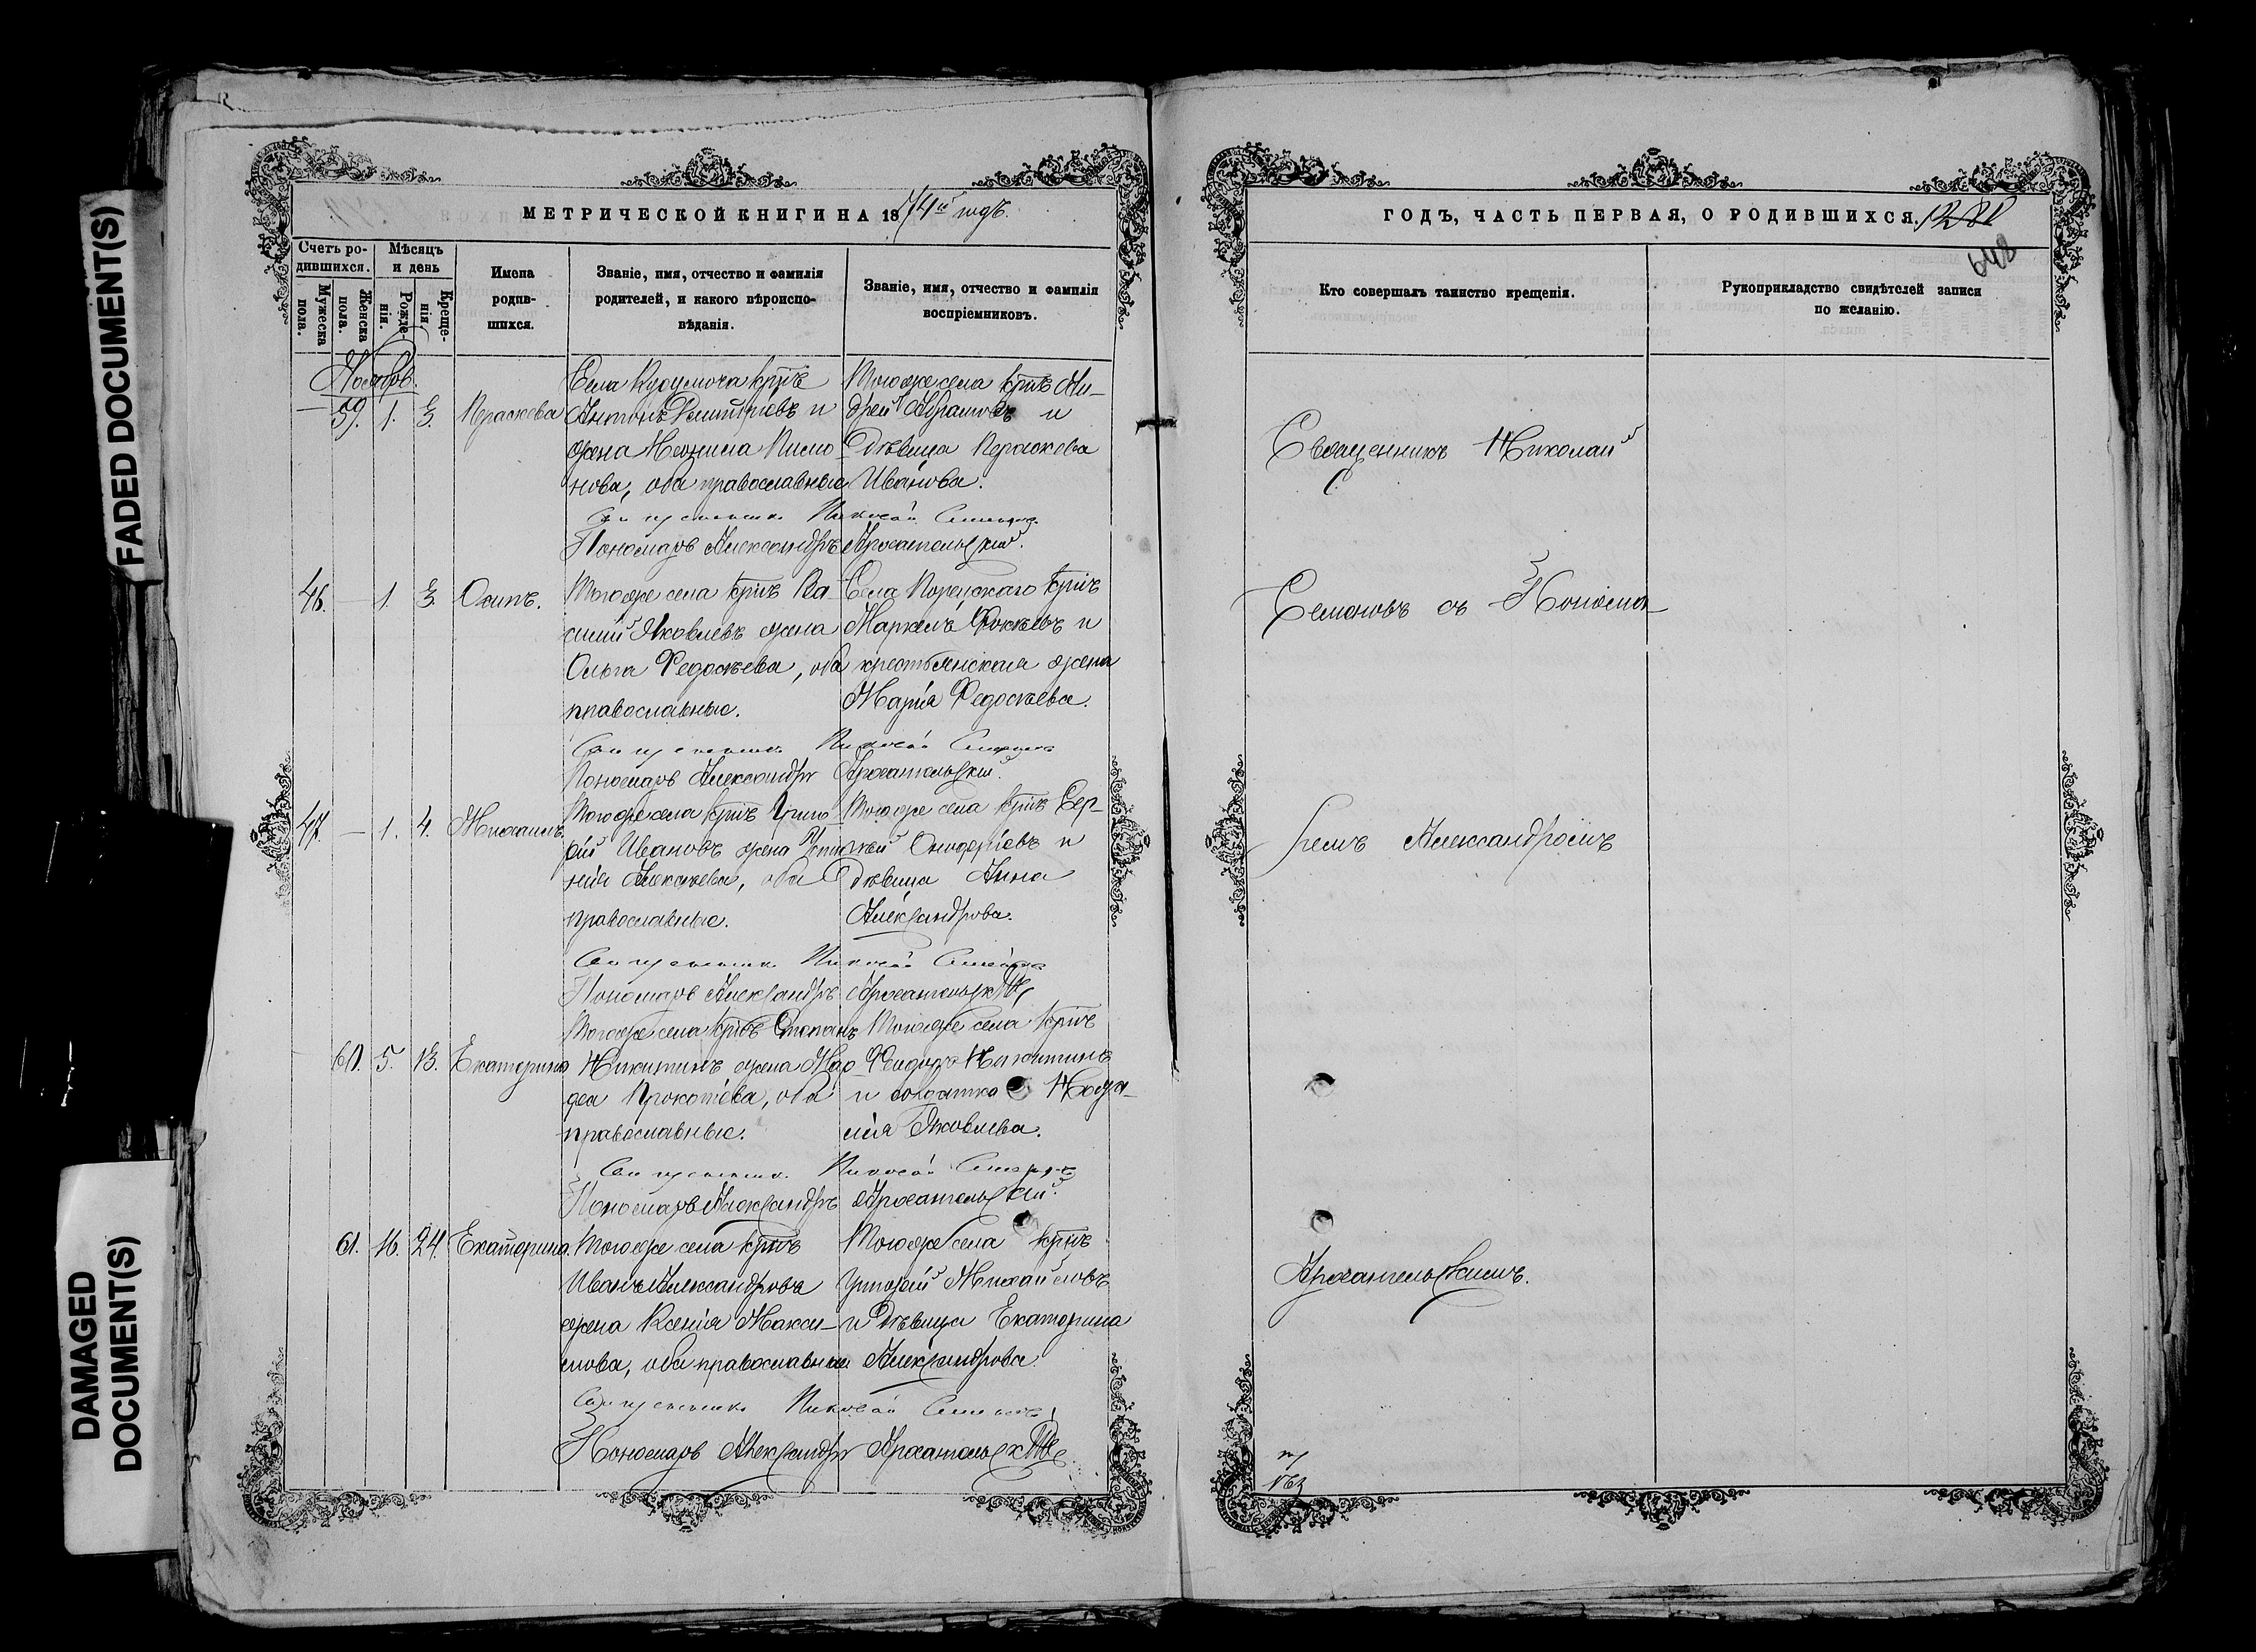 FADED DOCUMENT(S)
DAMAGED
DOCUMENT(S)
МЕТРИЧЕСКОЙ КНИГИ НА 1874й годъ.
Счетъ ро-
дившихся.
Мужеска
пола.
Женска
пола.
Мѣсяцъ
и день
Рожде-
нія.
Креще-
нія.
Имена
родив-
шихся.
Званіе, имя, отчество и фамилія
родителей, и какого вѣроиспо-
вѣданія.
Званіе, имя, отчество и фамилія
воспріемниковъ.
Ноябрь.
— 59. 1. 3. Параскева
Села крпъ
Антонъ Димитріевъ и
жена Неонила
нова, оба православные
Тогоже села крпъ Ан-
дрей Абрамовъ и
Дѣвица Параскева
Иванова.
Священникъ Николай Семеновъ
Пономарь Александръ Архангельскій.
46. — 1. 3. Осипъ.
Тогоже села крпъ Ва-
силій Яковлевъ жена
Ольга Федосѣева, оба
православные.
Села Порецкаго крпъ
Маркелъ Фокѣевъ и
крестьянская жена
Марія Федосѣева.
Священникъ Николай Семеновъ
Пономарь Александръ Архангельскій.
47. — 1. 4. Михаилъ.
Тогоже села крпъ Григо-
рій Ивановъ жена
нія Алексѣева, оба
православные.
Тогоже села крпъ Сер-
гѣй Онисифоровъ и
Дѣвица Анна
Александрова.
Священникъ Николай Семеновъ
Пономарь Александръ Архангельскій
60. 5. 13. Екатерина
Тогоже села крпъ Степанъ
Никитинъ жена Мар-
фа Прокопіева, оба
православные.
Тогоже села крпъ
Федоръ Никитинъ
и солдатка Ната-
лія Яковлева.
Священникъ Николай Семеновъ
Пономарь Александръ Архангельскій.
61. 16. 24. Екатерина.
Тогоже села крпъ
Иванъ Александровъ
жена Ксенія Макси-
мова, оба православные
Тогоже села крпъ
Григорій Михайловъ
и Дѣвица Екатерина
Александрова.
Священникъ Николай Семеновъ
Пономарь Александръ Архангельскій
ГОДЪ, ЧАСТЬ ПЕРВАЯ, О РОДИВШИХСЯ.
648
Кто совершалъ таинство крещенія.
Рукоприкладство свидѣтелей записи
по желанію.
Священникъ Николай
Семеновъ съ Понома-
ремъ Александромъ
Архангельскимъ.